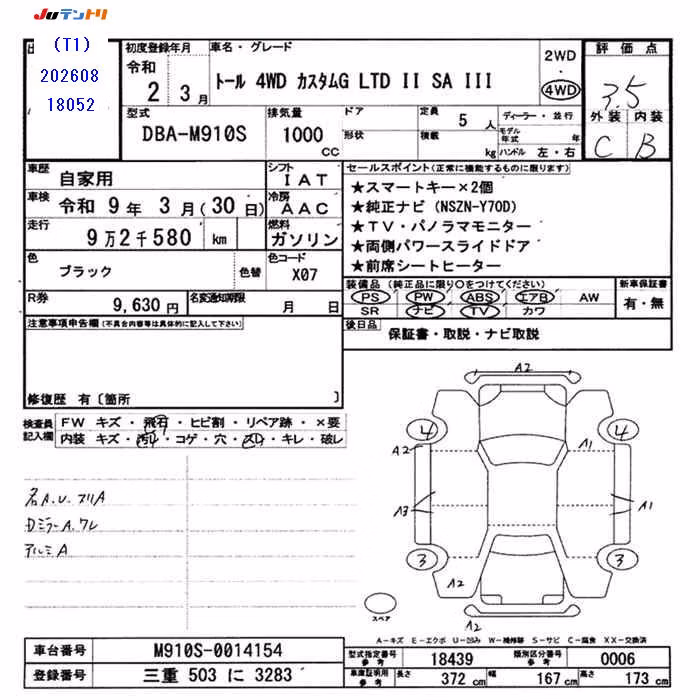 JUテントリ
(T1)
202608
18052
初度登録年月
令和
2 3月
車名・グレード
トール 4WD カスタムG LTD II SA III
2WD
・
4WD
評価点
3.5
外装 内装
C B
型式
DBA-M910S
排気量
1000
CC
ドア
形状
定員
5 人
積載
kg
ディーラー・並行
モデル年式 年
ハンドル 左・右
車歴
自家用
シフト
IAT
車検
令和 9年 3月(30日)
冷房
AAC
走行
9万2千580 km
燃料
ガソリン
色
ブラック
色替
色コード
X07
R券
9,630円
名変通知期限
月 日
セールスポイント(正常に機能するものに限ります)
★スマートキー×2個
★純正ナビ(NSZN-Y70D)
★TV・パノラマモニター
★両側パワースライドドア
★前席シートヒーター
装備品(純正品に限り○をつけてください)
PS PW ABS エアB AW
SR ナビ TV カワ
新車保証書
有・無
後日品
保証書・取説・ナビ取説
注意事項申告欄(不具合内容等は具体的に記入して下さい)
修復歴 有〔箇所 〕
検査員記入欄
FW キズ・飛石・ヒビ割・リペア跡・×要
内装 キズ・汚れ・コゲ・穴・スレ・キレ・破レ
名A.U.フリA
Dミラ-A.ワレ
アルミA
A2
4
4
A2
A1
A3
A1
3
3
A2
A2
スペア
A-キズ E-エクボ U-凹み W-補修跡 S-サビ C-腐食 XX-交換済
車台番号
M910S-0014154
登録番号
三重 503 に 3283
型式指定番号 参考
18439
類別区分番号 参考
0006
車庫証明用 参考
長さ 372 cm
幅 167 cm
高さ 173 cm